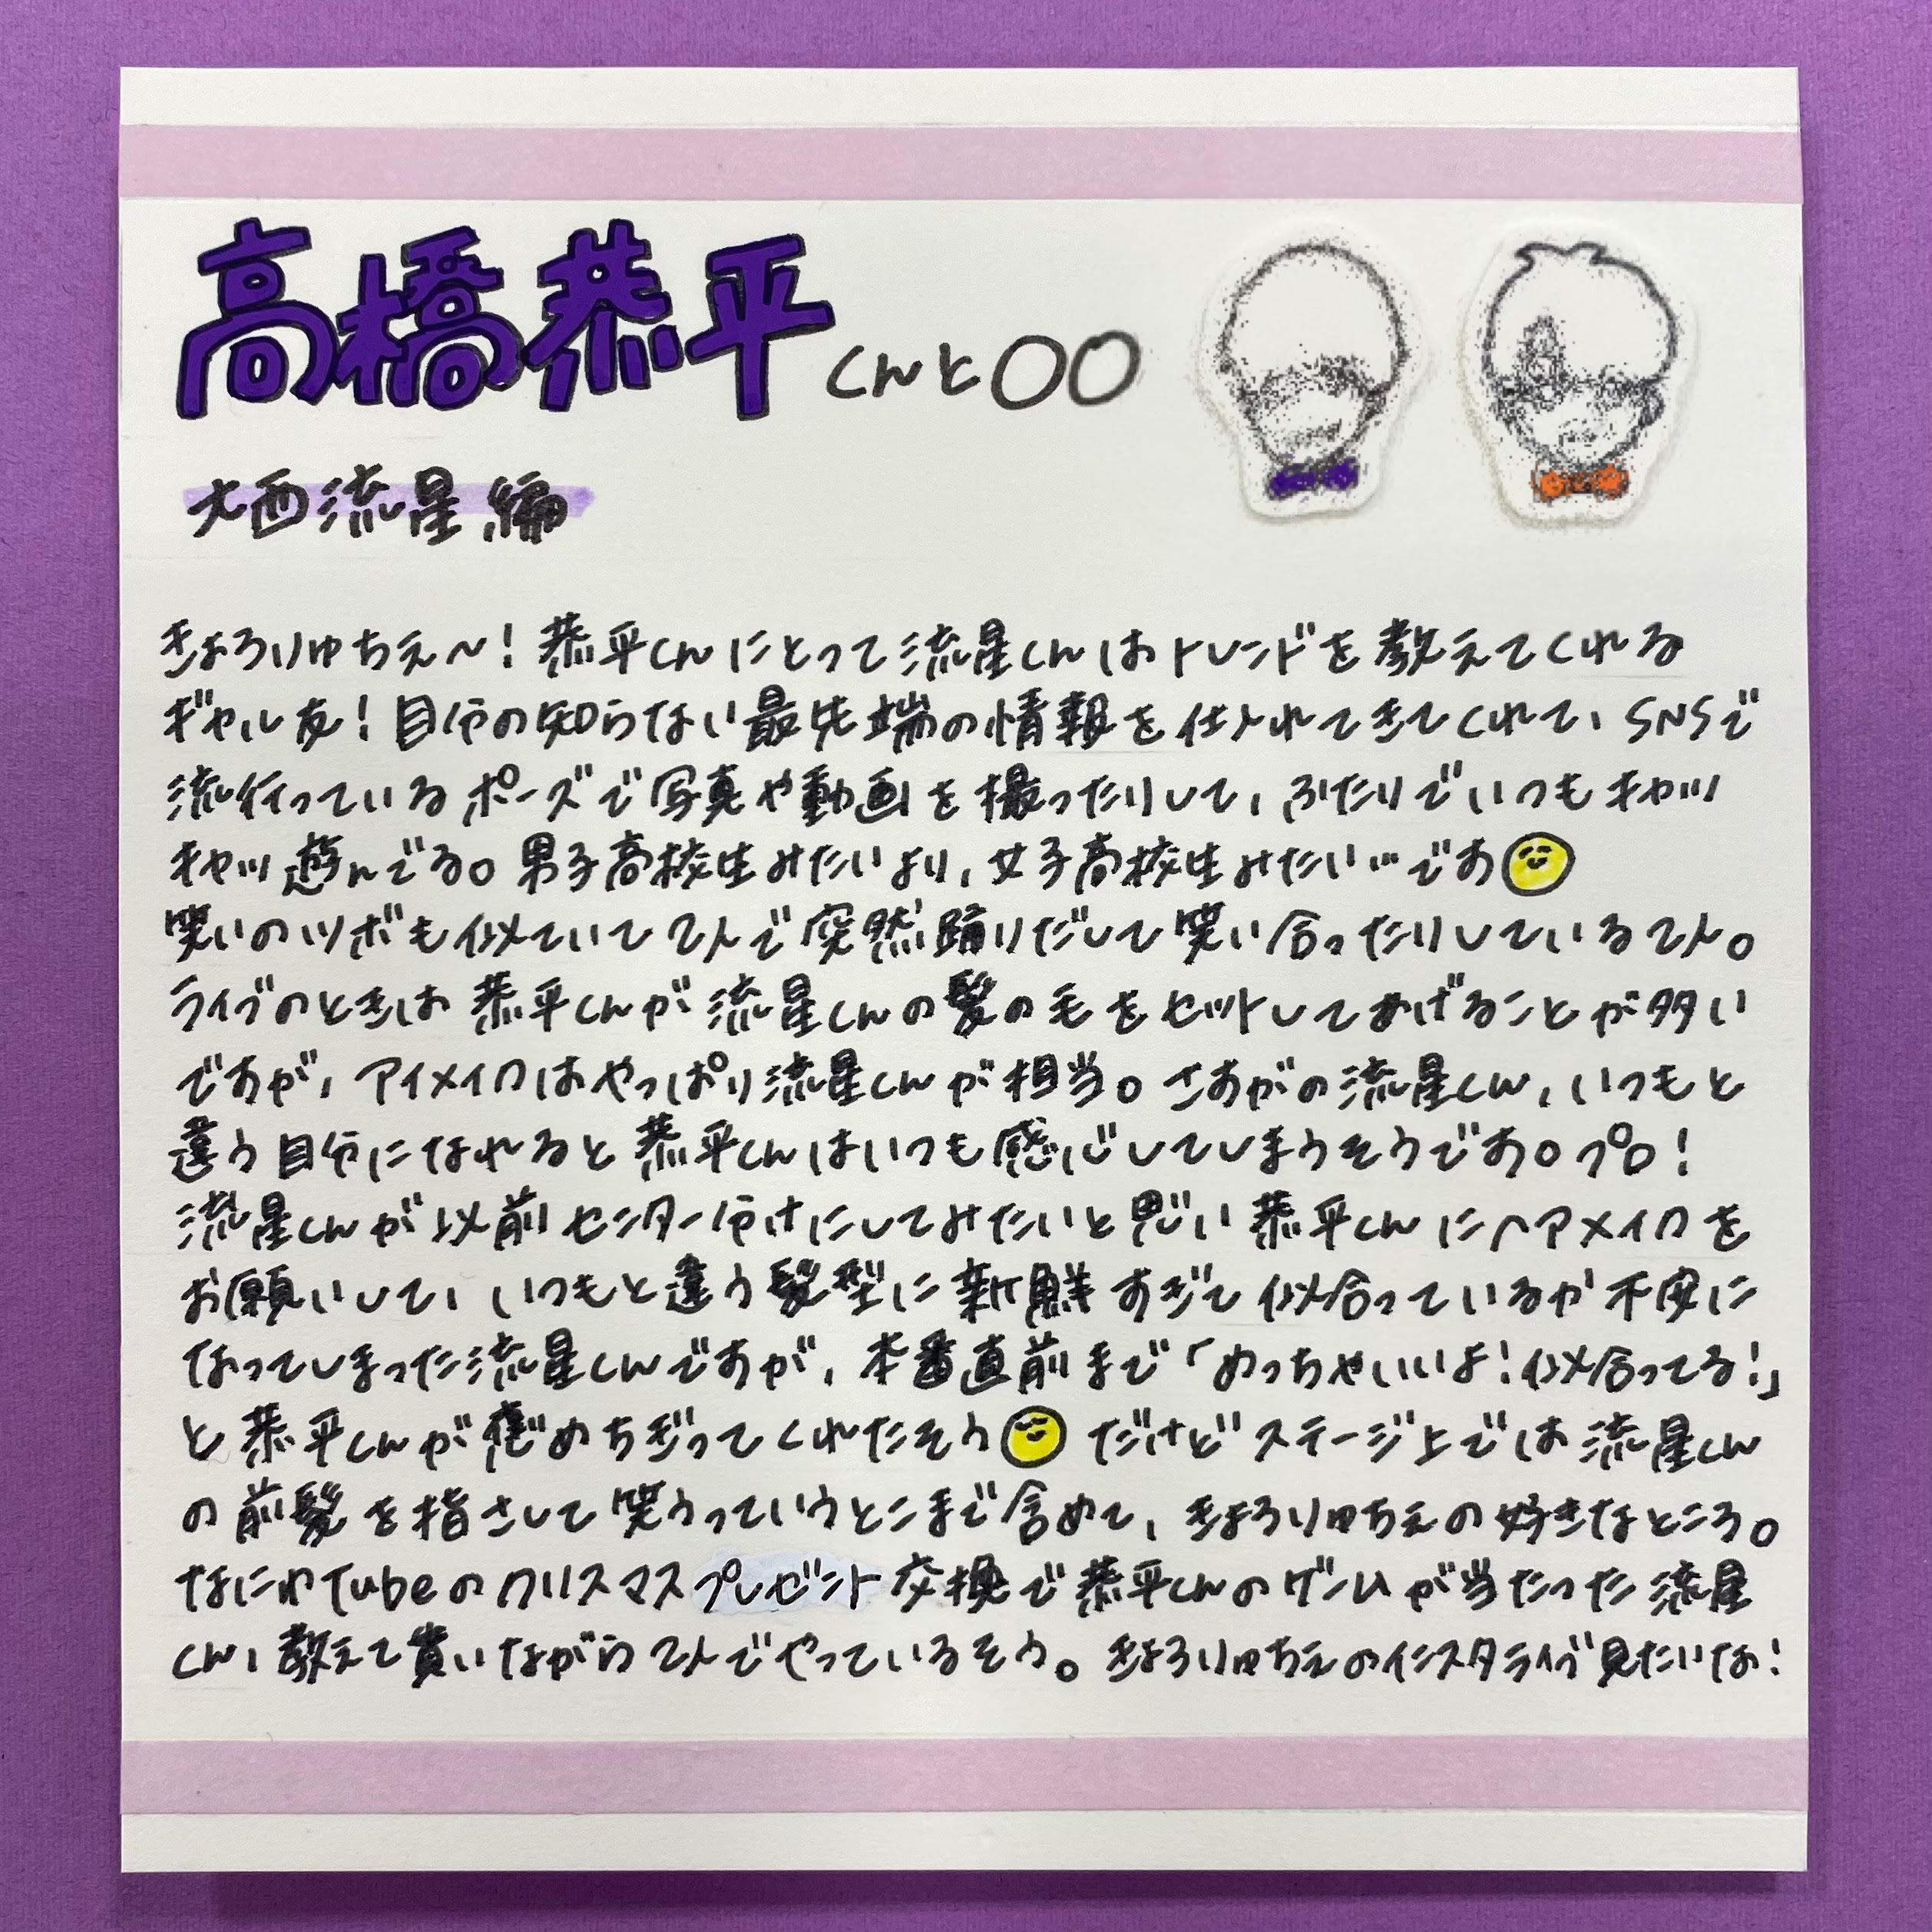 高橋恭平くんと○○
大西流星編
きょろりゅちぇ〜！恭平くんにとって流星くんはトレンドを教えてくれる
ギャル友！自分の知らない最先端の情報を仕入れてきてくれて、SNSで
流行っているポーズで写真や動画を撮ったりして、ふたりでいつもキャッ
キャッ遊んでる。男子高校生みたいより、女子高校生みたい…です
笑いのツボも似ていて2人で突然踊りだして笑い合ったりしている2人。
ライブのときは恭平くんが流星くんの髪の毛をセットしてあげることが多い
ですが、アイメイクはやっぱり流星くんが担当。さすがの流星くん、いつもと
違う自分になれると恭平くんはいつも感心してしまうそうです。プロ！
流星くんが以前センター分けにしてみたいと思い恭平くんにヘアメイクを
お願いして、いつもと違う髪型に新鮮すぎて似合っているか不安に
なってしまった流星くんですが、本番直前まで「めっちゃいいよ！似合ってる！」
と恭平くんが褒めちぎってくれたそう だけどステージ上では流星くん
の前髪を指さして笑うっていうとこまで含めて、きょろりゅちぇの好きなところ。
なにわTubeのクリスマスプレゼント交換で恭平くんのゲームが当たった流星
くん、教えて貰いながら2人でやっているそう。きょろりゅちぇのインスタライブ見たいな！